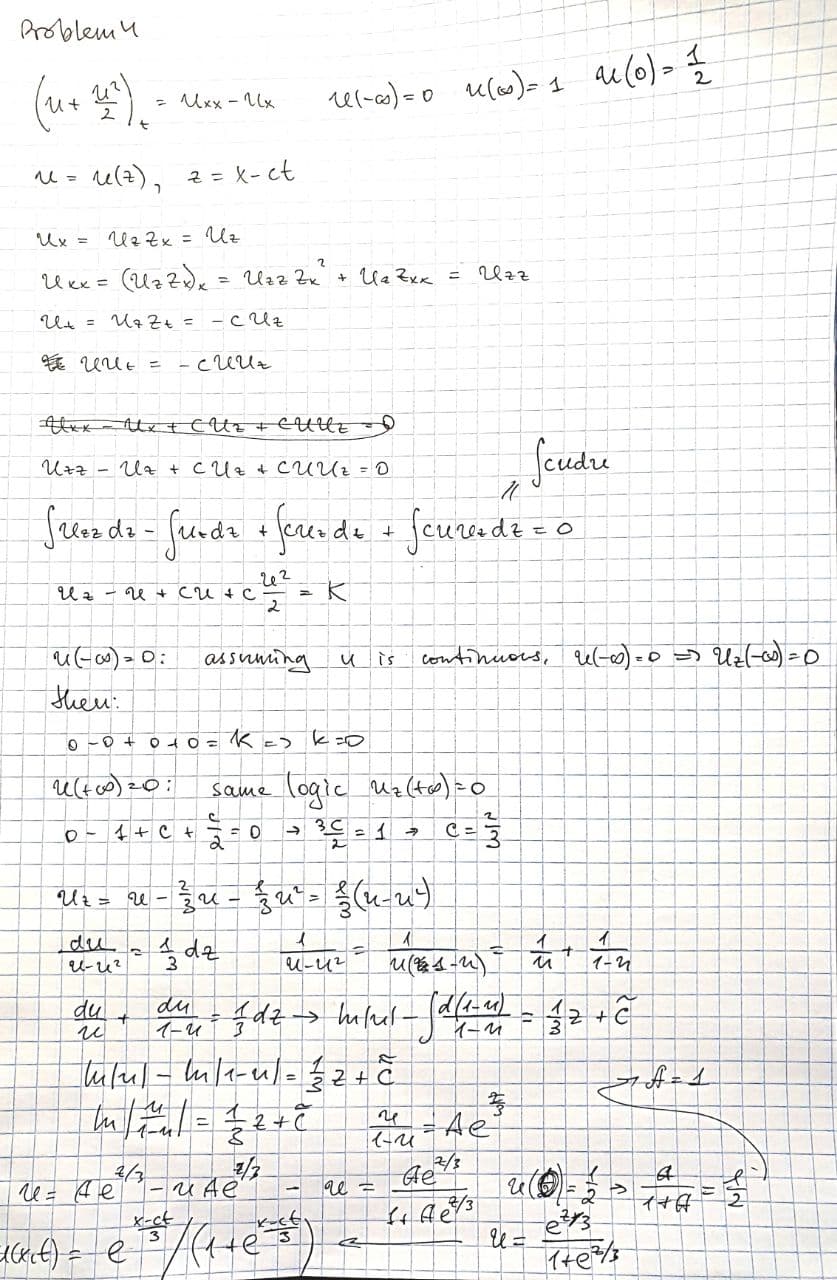 Problem 4
(u + u²/2)_t = u_xx - u_x   u(-∞) = 0   u(∞) = 1   u(0) = 1/2
u = u(z), z = x - ct
u_x = u_z z_x = u_z
u_xx = (u_z z_x)_x = u_zz z_x² + u_z z_xx = u_zz
u_t = u_z z_t = -c u_z
u u_t = -c u u_z
u_xx - u_x + c u_z + c u u_z = 0
u_zz - u_z + c u_z + c u u_z = 0
∫cudu
∫u_zz dz - ∫u_z dz + ∫c u_z dz + ∫c u u_z dz = 0
u_z - u + cu + c u²/2 = K
u(-∞) = 0: assuming u is continuous, u(-∞) = 0 => u_z(-∞) = 0
then:
0 - 0 + 0 + 0 = K => k = 0
u(+∞) = 0: same logic u_z(+∞) = 0
0 - 1 + c + c/2 = 0 → 3c/2 = 1 → c = 2/3
u_z = u - 2/3 u - 1/3 u² = 1/3 (u - u²)
du/(u - u²) = 1/3 dz   1/(u - u²) = 1/(u(1 - u)) = 1/u + 1/(1 - u)
du/u + du/(1 - u) = 1/3 dz → ln|u| - ∫ d(1 - u)/(1 - u) = 1/3 z + c̃
ln|u| - ln|1 - u| = 1/3 z + c̃
ln|u/(1 - u)| = 1/3 z + c̃   u/(1 - u) = A e^(z/3)   A = 1
u = A e^(z/3) - u A e^(z/3) - u = A e^(z/3)/(1 + A e^(z/3))   u(0) = 1/2 → A/(1 + A) = 1/2
u(x,t) = e^((x - ct)/3) / (1 + e^((x - ct)/3)) ← u = e^(z/3)/(1 + e^(z/3))